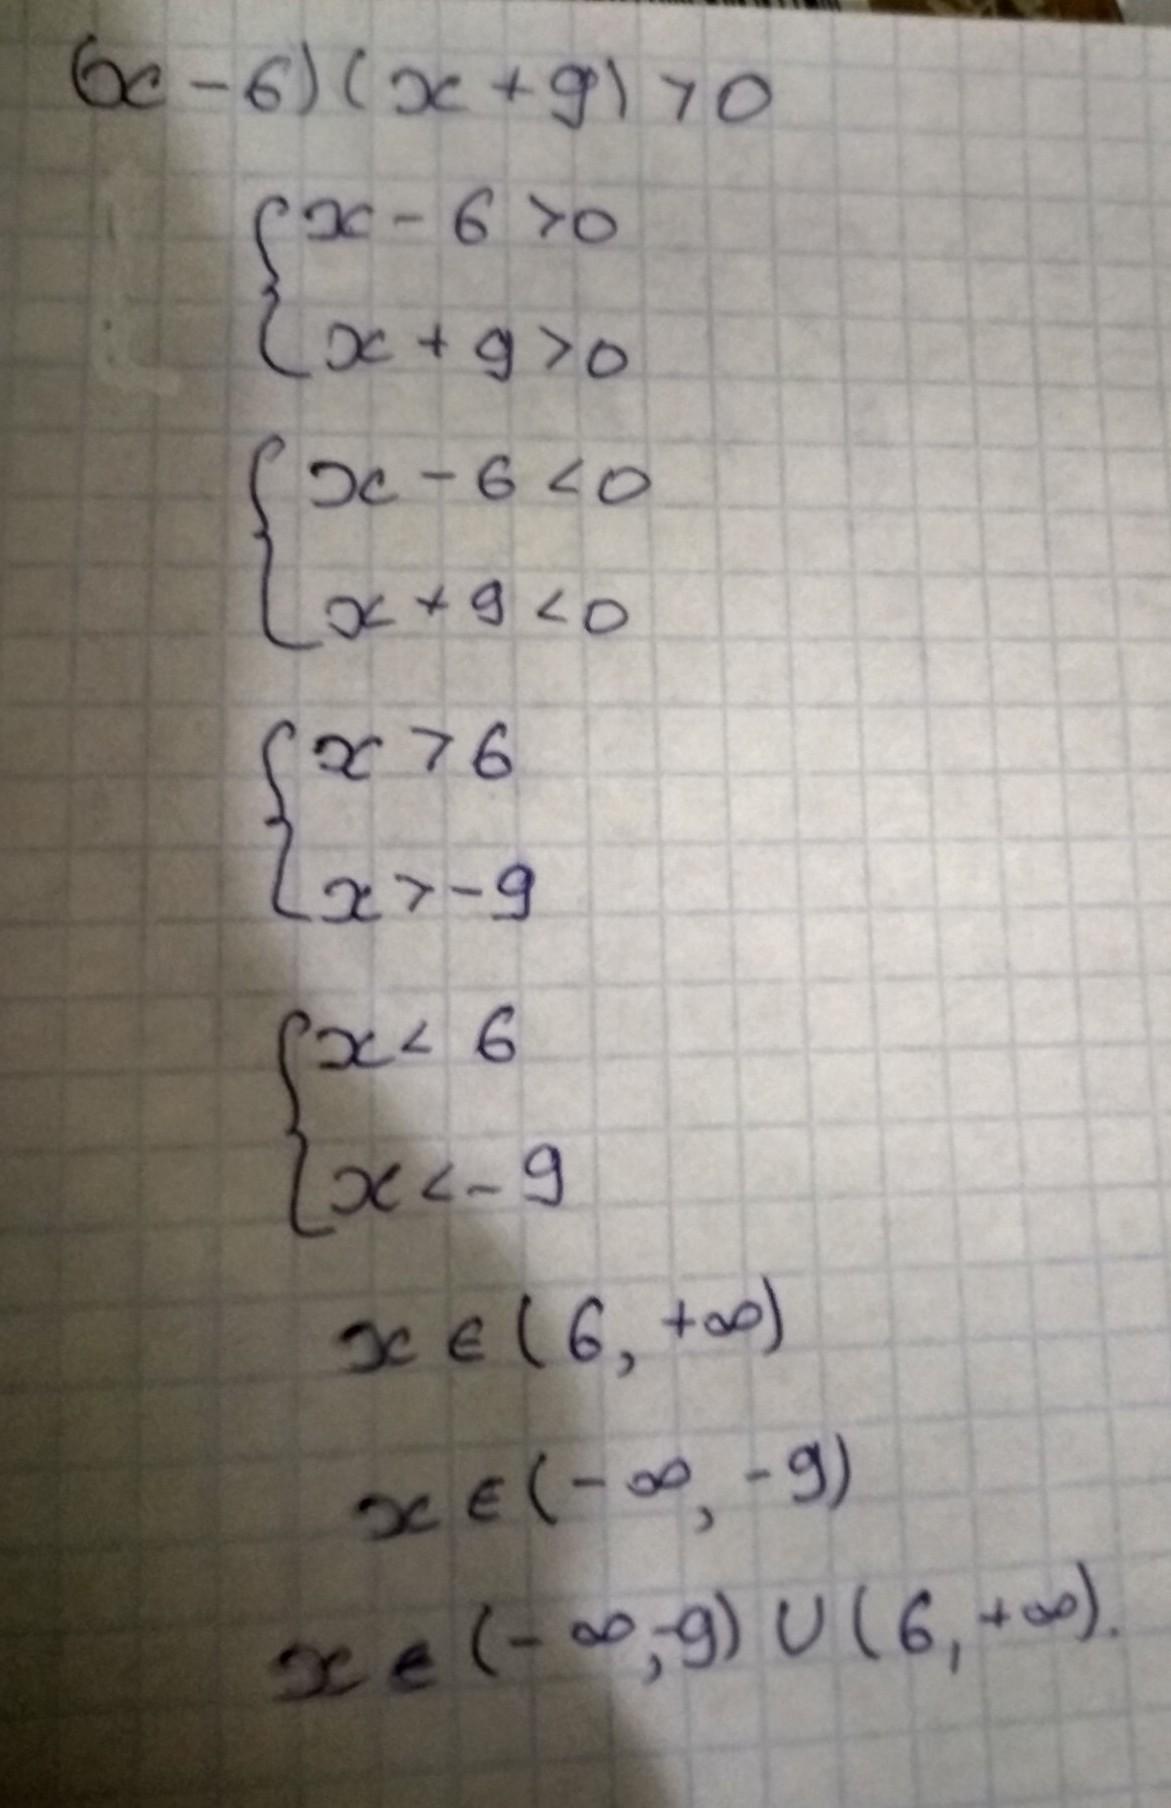 (x - 6)(x + 9) > 0
{ x - 6 > 0
x + 9 > 0
{ x - 6 < 0
x + 9 < 0
{ x > 6
x > - 9
{ x < 6
x < - 9
x ∈ (6, +∞)
x ∈ (-∞, -9)
x ∈ (-∞, -9) ∪ (6, +∞).